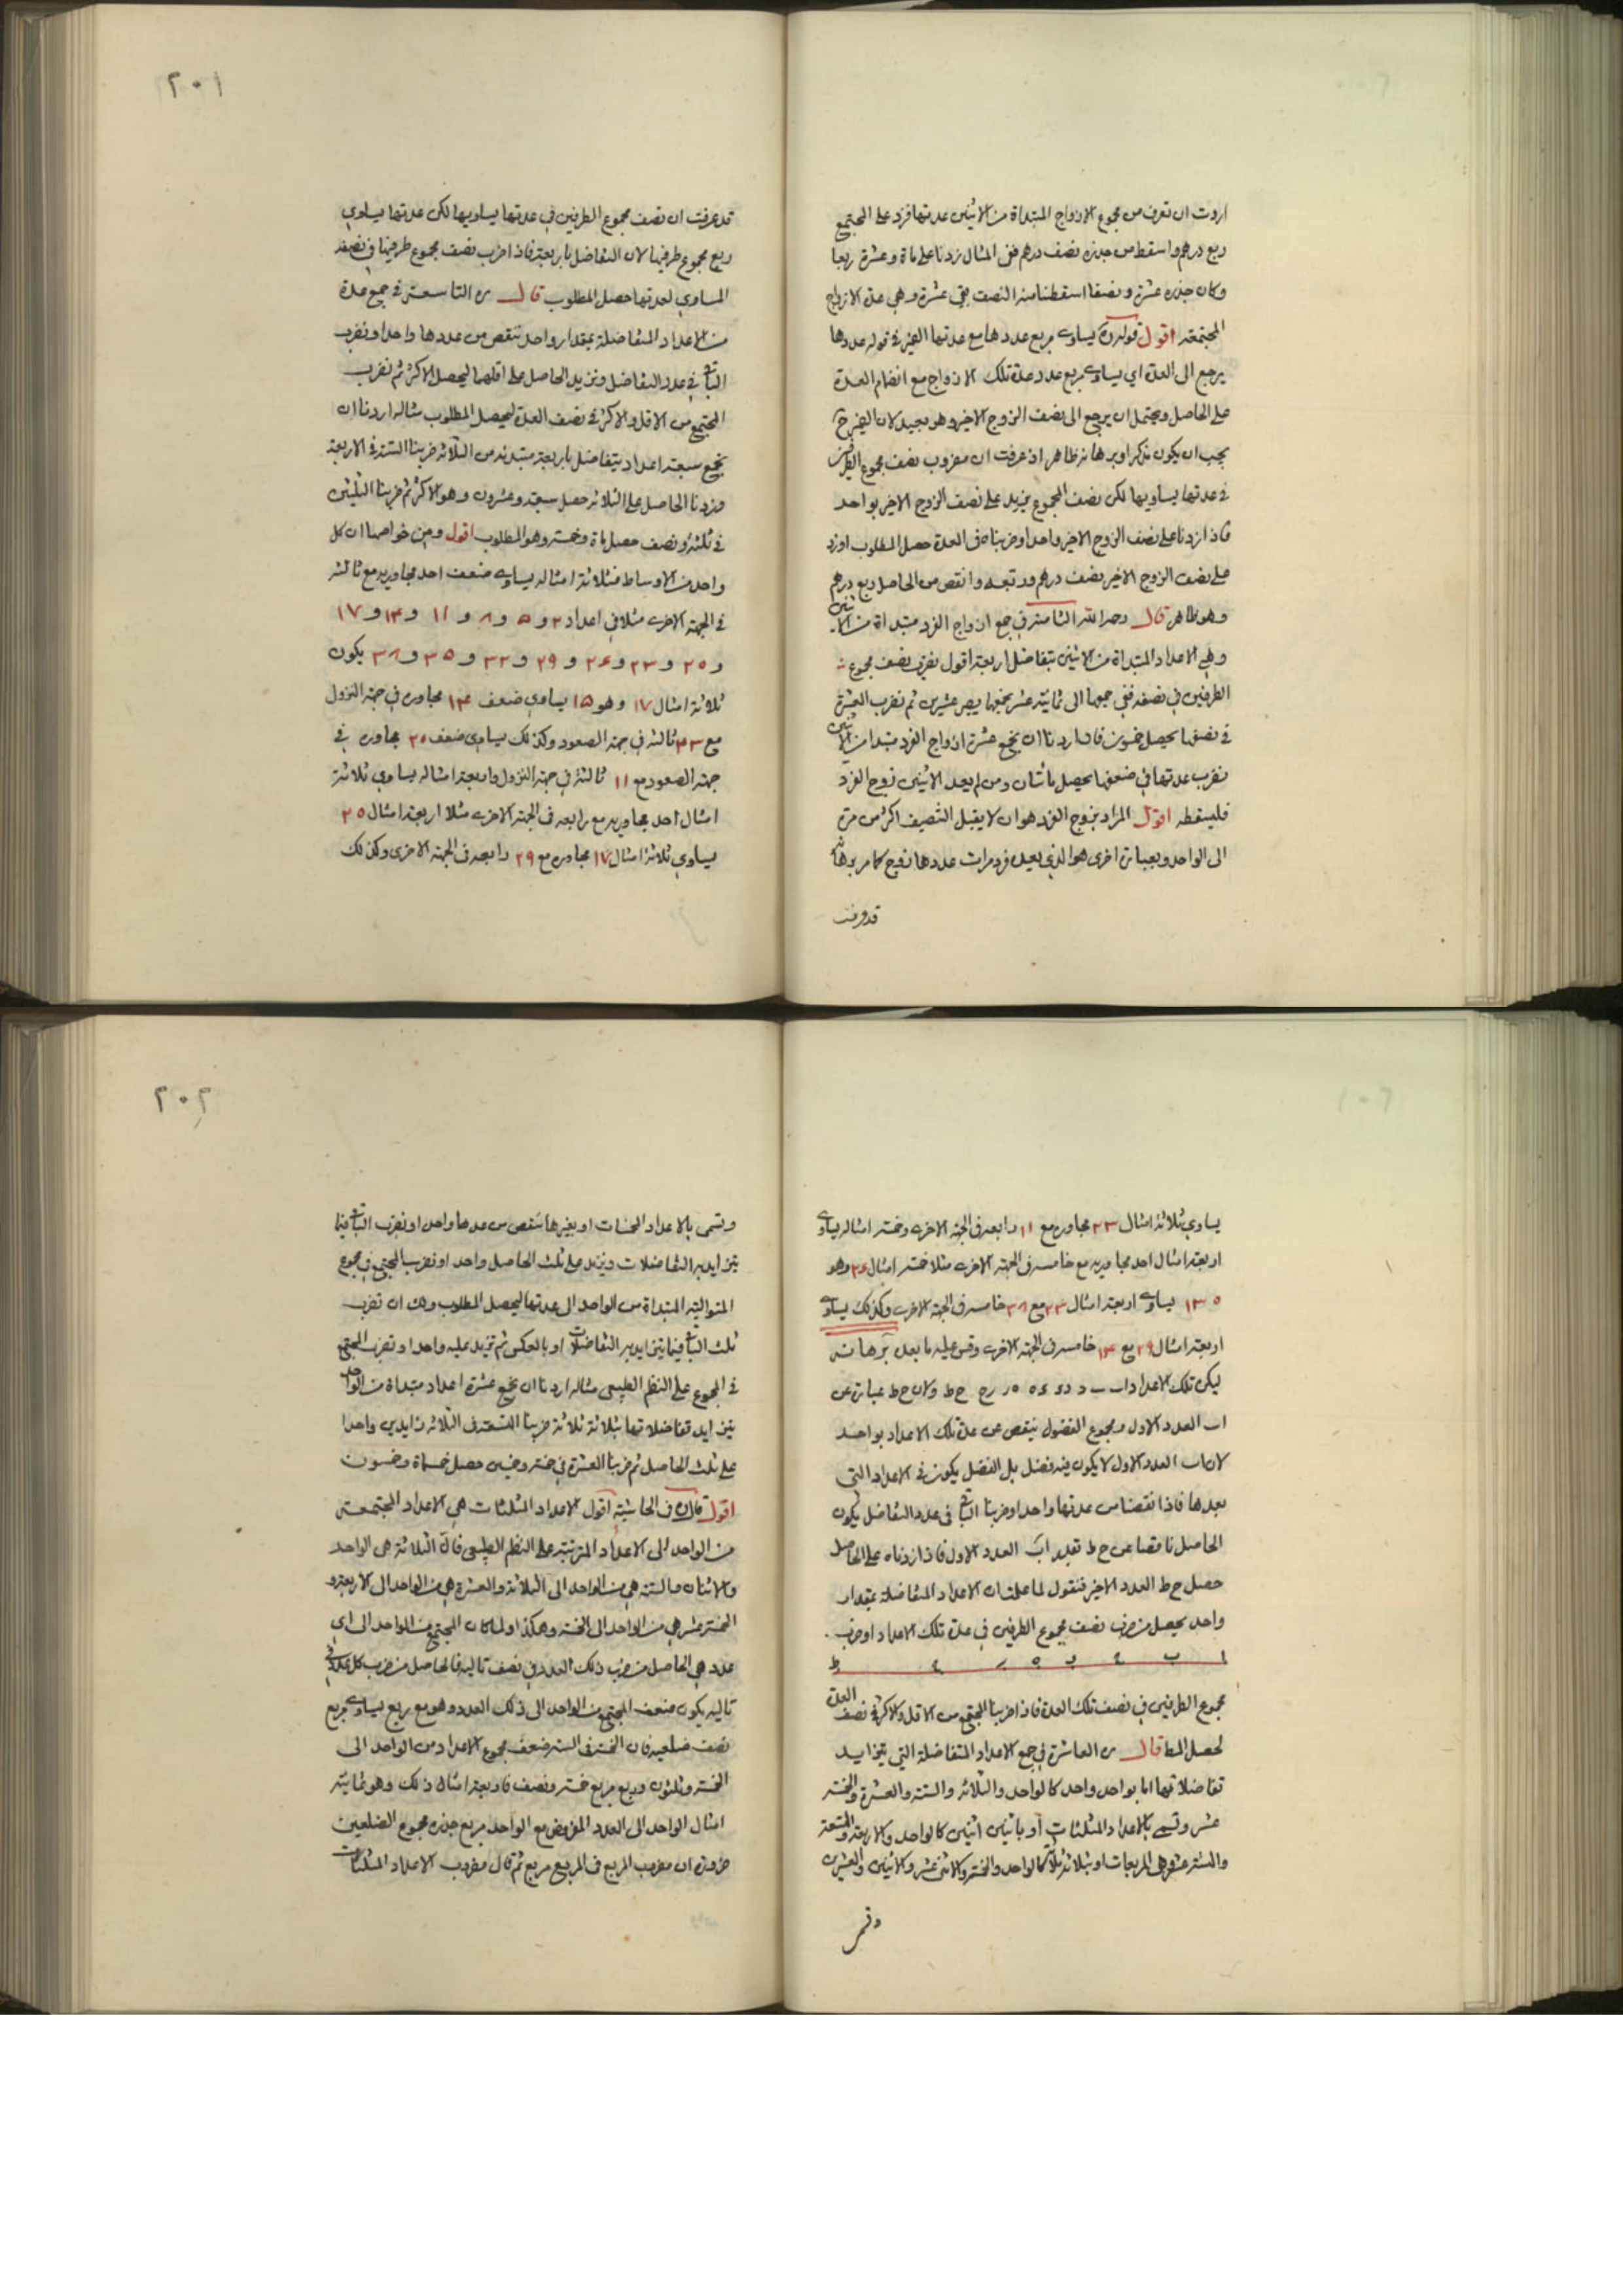 اردت ان تعرف من مجموع الازواج المبتداة من الاثنين عدتها فزد على المجتمع
ربع درهم واسقط من جذره نصف درهم ففى المثال زدنا على ماة وعشرة ربعا
وكان جذره عشرة ونصفا اسقطنا منه النصف بقى عشرة وهى عدة الازواج
المجتمعة اقول قوله ره يساوى مربع عددها مع عدتها الضمير فى قوله عددها
يرجع الى العدة اى يساوى مربع عدد عدة تلك الازواج مع انضام العدة
على الحاصل ويحتمل ان يرجع الى نصف الزوج الاخير وهو بعيد لان الضمير ح
يجب ان يكون مذكرا وبرهانه ظاهر اذ عرفت ان مضروب نصف مجموع الطرفين
فى عدتها يساويها لكن نصف المجموع يزيد على نصف الزوج الاخير بواحد
فاذا زدنا على نصف الزوج الاخير واحدا وضربناه فى العدة حصل المطلوب او زد
على نصف الزوج الاخير نصف درهم وربعه وانقص من الحاصل ربع درهم
وهو ظاهر قال رحمه الله الثامنة فى جمع ازواج الفرد مبتداة من الاثنين
وهى الاعداد المبتداة من الاثنين بتفاضل اربعة اقول نضرب نصف مجموع
الطرفين فى نصفه ففى جمعها الى ثمانية عشر نجمعها يصير عشرين ثم نضرب العشرة
فى نصفها يحصل خمسون فان اردنا ان نجمع عشرة ازواج الفرد مبتدا من الاثنين
نضرب عدتها فى ضعفها يحصل مأتان ومن لم يعد الاثنين زوج الفرد
فليسقطه اقول المراد بزوج الفرد هو ان لا يقبل التنصيف اكثر من مرة
الى الواحد وبعبارة اخرى هو الذى يعده فرد مرات عددها زوج كما مر برهانه
قد عرفت
٢٠١
قد عرفت ان نصف مجموع الطرفين فى عدتها يساويها لكن عدتها يساوى
ربع مجموع طرفيها لان التفاضل باربعة فاذا ضرب نصف مجموع طرفيها فى نصفه
المساوى لعدتها حصل المطلوب قال ره التاسعة فى جمع عدة
من الاعداد المتفاضلة بمقدار واحد تنقص من عددها واحدا ونضرب
الباقى فى عدد التفاضل ونزيد الحاصل على اقلها ليحصل الاكثر ثم نضرب
المجتمع من الاقل والاكثر فى نصف العدة ليحصل المطلوب مثاله اردنا ان
نجمع سبعة اعداد يتفاضل باربعة مبتدئه من الثلاثة ضربنا الستة فى الاربعة
وزدنا الحاصل على الثلاثة حصل سبعة وعشرون وهو الاكثر ثم ضربنا الثلثين
فى ثلثة ونصف حصل ماة وخمسة وهو المطلوب اقول ومن خواصها ان كل
واحد من الاوساط فثلاثة امثاله يساوى ضعف احد مجاوريه مع ثالثه
فى الجهة الاخرى مثلا فى اعداد ٢ و ٥ و ٨ و ١١ و ١٤ و ١٧
و ٢٠ و ٢٣ و ٢٦ و ٢٩ و ٣٢ و ٣٥ و ٣٨ يكون
ثلاثة امثال ١٧ وهو ٥١ يساوى ضعف ١٤ مجاوره فى جهة النزول
مع ٢٣ ثالثه فى جهة الصعود وكذلك يساوى ضعف ٢٠ مجاوره فى
جهة الصعود مع ١١ ثالثه فى جهة النزول واربعة امثاله يساوى ثلاثة
امثال احد مجاوريه مع رابعه فى الجهة الاخرى مثلا اربعة امثال ٢٠
يساوى ثلاثة امثال ١٧ مجاوره مع ٢٩ رابعه فى الجهة الاخرى وكذلك
يساوى ثلاثة امثال ٢٣ مجاوره مع ١١ رابعه فى الجهة الاخرى وخمسة امثاله يساوى
اربعة امثال احد مجاوريه مع خامسه فى الجهة الاخرى مثلا خمسة امثال ٢٦ وهو
١٣٠ يساوى اربعة امثال ٢٣ مع ٣٨ خامسه فى الجهة الاخرى وكذلك يساوى
اربعة امثال ٢٩ مع ١٤ خامسه فى الجهة الاخرى وقس عليه ما بعد برهانه
ليكن تلك الاعداد اب ح ط ولان ح ط عبارة عن
اب العدد الاول ومجموع الفضول ينقص عن عدة تلك الاعداد بواحد
لان اب العدد الاول لا يكون فيه فضل بل الفضل يكون فى الاعداد التى
بعدها فاذا نقصنا من عدتها واحدا وضربنا الباقى فى عدد التفاضل يكون
الحاصل ناقصا عن ح ط بقدر اب العدد الاول فاذا زدناه على الحاصل
حصل ح ط العدد الاخير فنقول لما علمت ان الاعداد المتفاضلة بمقدار
واحد يحصل من ضرب نصف مجموع الطرفين فى عدة تلك الاعداد او ضرب
مجموع الطرفين فى نصف تلك العدة فاذا ضربنا المجتمع من الاقل والاكثر فى نصف العدة
لحصل المط قال ره العاشرة فى جمع الاعداد المتفاضلة التى يتزايد
تفاضلاتها اما بواحد واحد كالواحد والثلاثة والستة والعشرة والخمسة
عشر وتسمى بالاعداد المثلثات أو باثنين اثنين كالواحد والاربعة والتسعة
والستة عشر وهى المربعات او بثلاثة ثلاثة كالواحد والخمسة والاثنى عشر والاثنين والعشرين
وتسمى
٢٠٢
وتسمى بالاعداد المخمسات او بغيرها تنقص من عددها واحدا ونضرب الباقى فيما
يتزايد به التفاضلات ونزيد على ثلث الحاصل واحدا ونضرب المجتمع فى مجموع
المتوالية المبتداة من الواحد الى عدتها ليحصل المطلوب ولك ان تضرب
ثلث الباقى فيما يتزايد به التفاضلات او بالعكس ثم تزيد عليه واحدا وتضرب المجتمع
فى المجموع على النظم الطبيعى مثاله اردنا ان نجمع عشرة اعداد مبتداة من الواحد
يتزايد تفاضلاتها بثلاثة ثلاثة ضربنا التسعة فى الثلاثة وزايدين واحدا
على ثلث الحاصل ثم ضربنا العشرة فى خمسة وخمسين حصل خمسماة وخمسون
اقول قال ره فى الحاشية اقول الاعداد المثلثات هى الاعداد المجتمعة
من الواحد الى الاعداد المترتبة على النظم الطبيعى فان الثلاثة هى الواحد
والاثنان والستة هى من الواحد الى الثلاثة والعشرة هى من الواحد الى الاربعة و
الخمسة عشر هى من الواحد الى الخمسة وهكذا ولما كان المجتمع من الواحد الى اى
عدد هى الحاصل من ضرب ذلك العدد فى نصف تاليه فالحاصل من ضرب كل عدد فى
تاليه يكون ضعف المجتمع من الواحد الى ذلك العدد وهو مع ربع يساوى مربع
نصف ضلعيه فان الخمسة فى الستة ضعف مجموع الاعداد من الواحد الى
الخمسة وثلثون وربع مربع خمسة ونصف فاربعة امثال ذلك وهو ثمانية
امثال الواحد الى العدد المفروض مع الواحد مربع جذره مجموع الضلعين
ضرورة ان مضروب المربع فى المربع مربع ثم قال مضروب الاعداد المثلثات